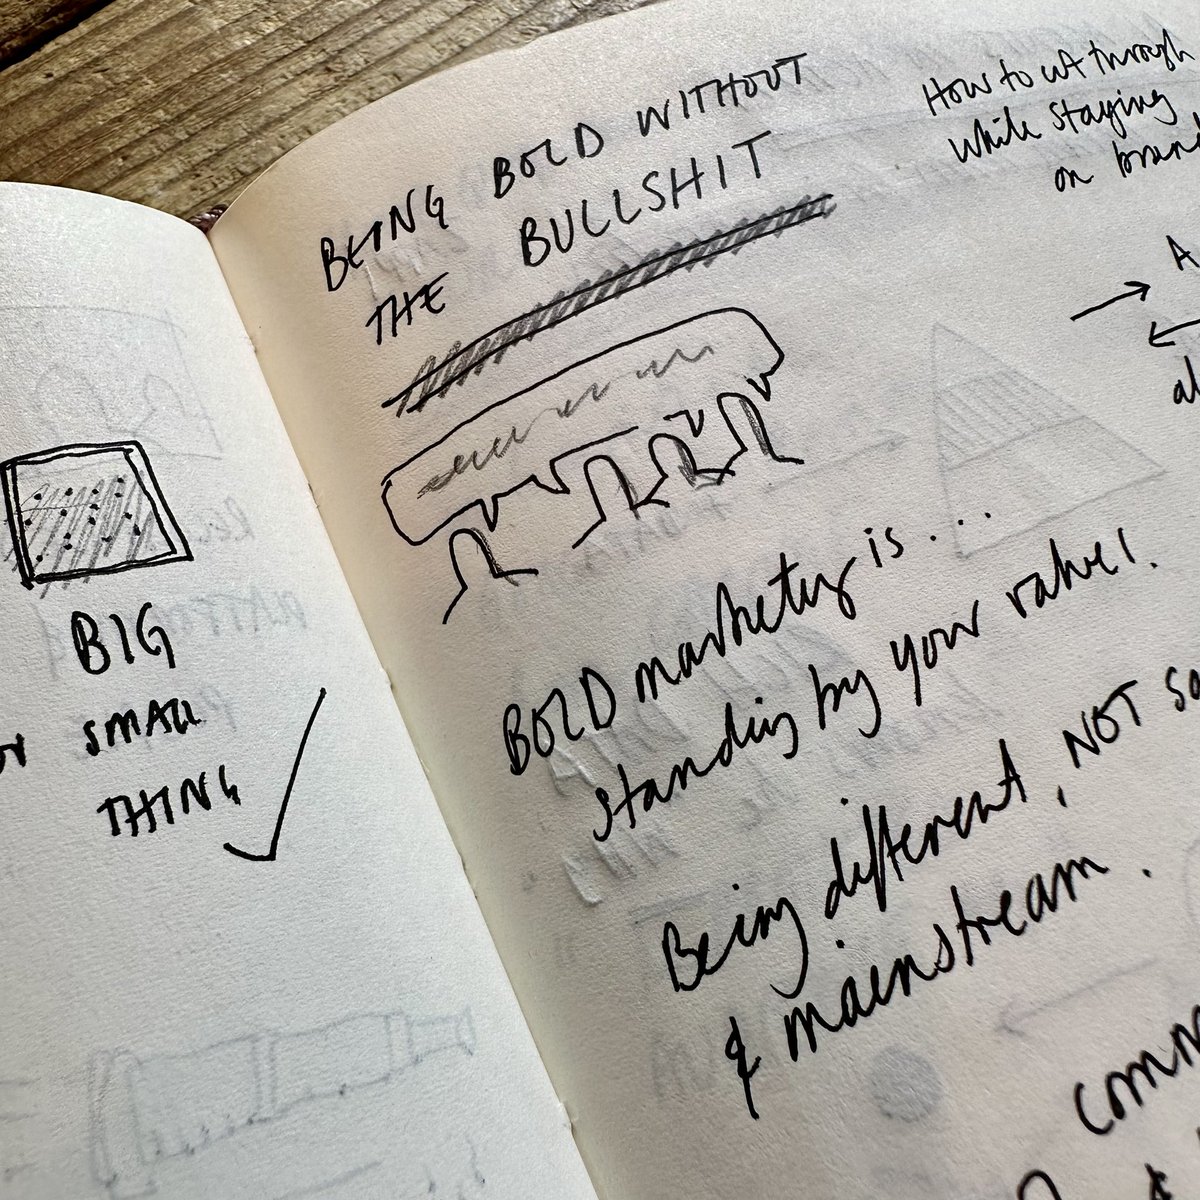 BIG
SMALL
THING
BEING BOLD WITHOUT
THE BULLSHIT
How to cut through
while staying
on brand
BOLD marketing is...
standing by your values.
Being different, NOT
& mainstream.